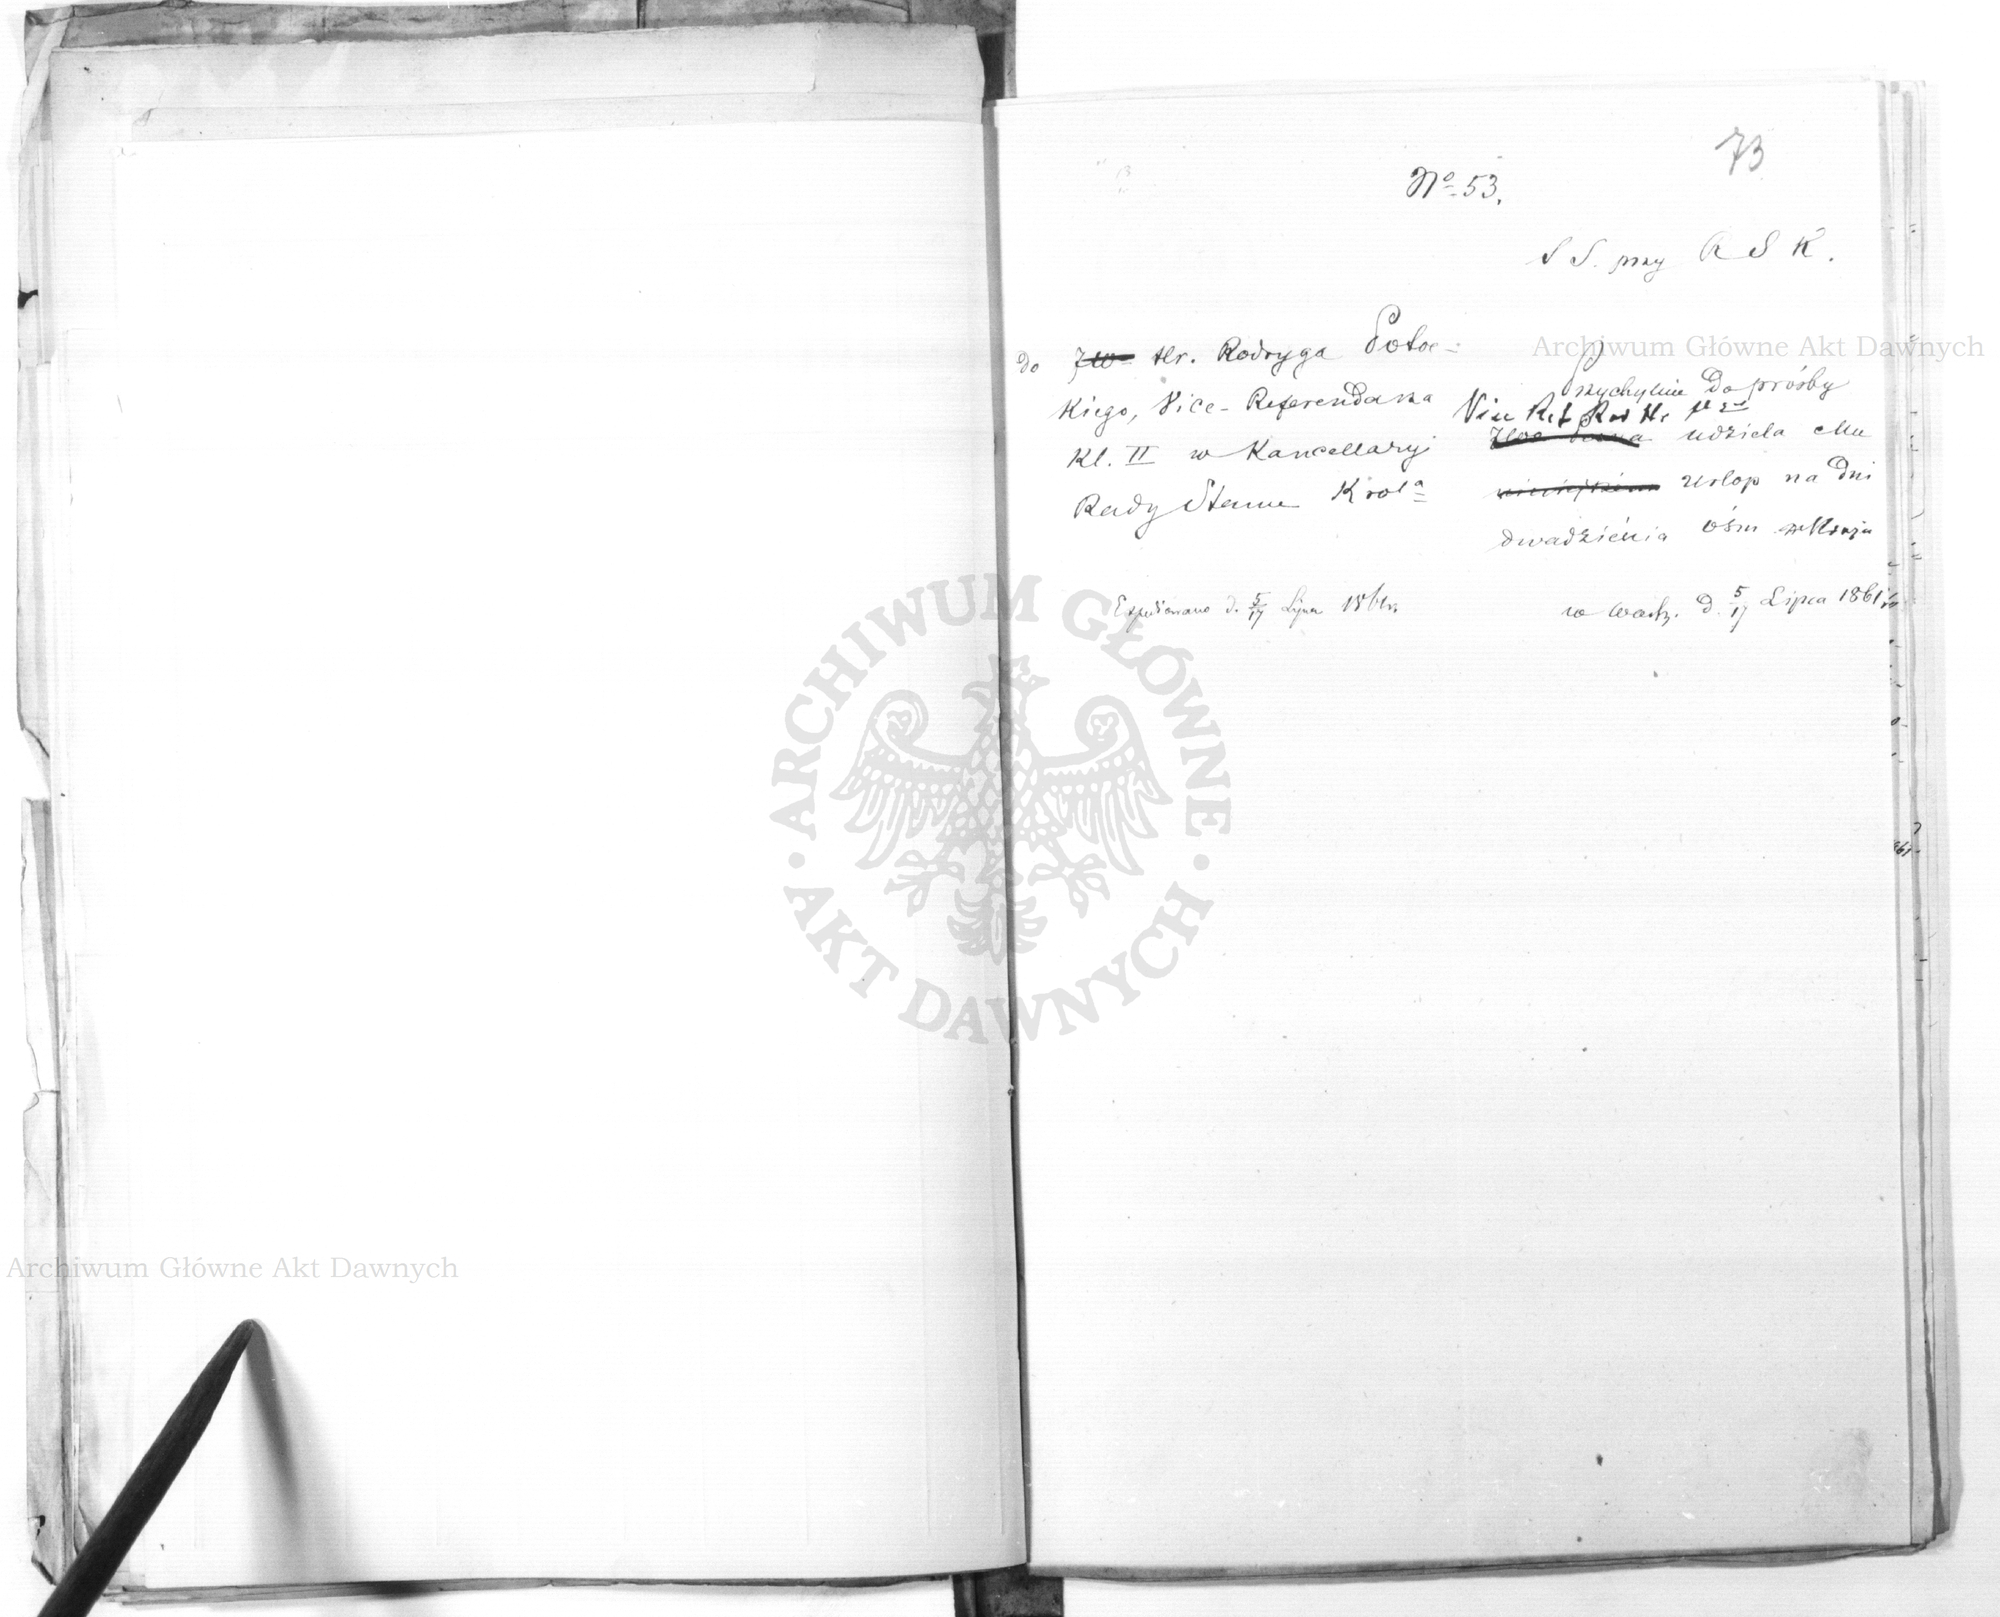 73
Nº 53.
S S. przy R S K.
do JW Hr. Rodryga Potoc-
kiego, Vice-Referendarza
Kl. II w Kancellaryi
Rady Stanu Krola
Expediowano d. 5/17 Lipca 1861 r.
Przychylnie do prośby
Vice Ref Rad Hr
udziela Mu
niniejszem urlop na dni
dwadzieścia ośm w Kraju
w Warsz. d. 5/17 Lipca 1861 r.
Archiwum Główne Akt Dawnych
ARCHIWUM GŁÓWNE
AKT DAWNYCH
Archiwum Główne Akt Dawnych